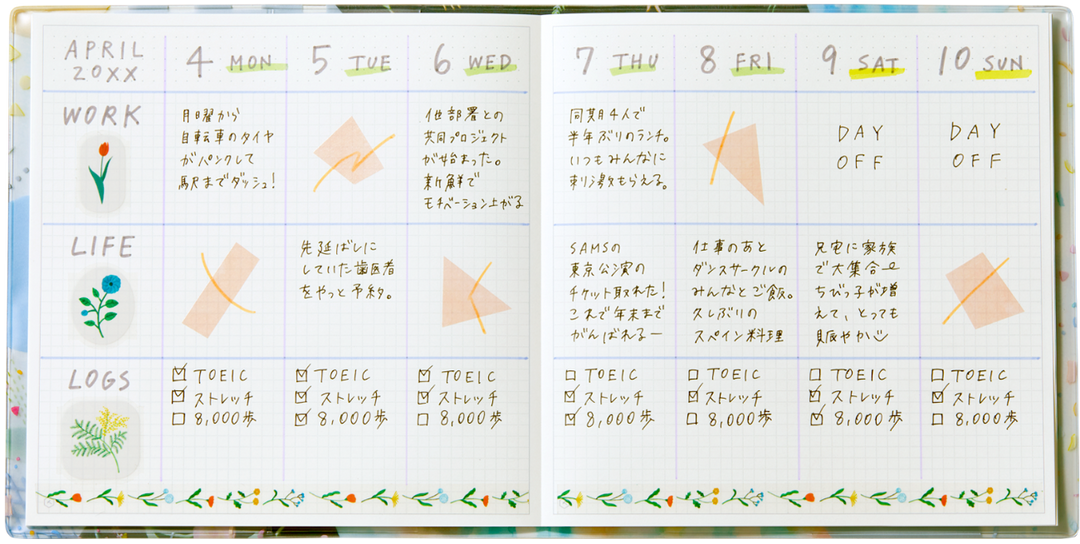 APRIL
20XX
4 MON
5 TUE
6 WED
7 THU
8 FRI
9 SAT
10 SUN
WORK
月曜から
自転車のタイヤ
がパンクして
駅までダッシュ!
他部署との
共同プロジェクト
が始まった。
新鮮で
モチベーション上がる
同期4人で
半年ぶりのランチ。
いつもみんなに
刺激もらえる。
DAY
OFF
DAY
OFF
LIFE
先延ばしに
していた歯医者
をやっと予約。
SAMSの
東京公演の
チケット取れた!
これで年末まで
がんばれるー
仕事のあと
ダンスサークルの
みんなとご飯。
久しぶりの
スペイン料理
兄宅に家族
で大集合
ちびっ子が増
えて、とっても
賑やか
LOGS
TOEIC
ストレッチ
8,000歩
TOEIC
ストレッチ
8,000歩
TOEIC
ストレッチ
8,000歩
TOEIC
ストレッチ
8,000歩
TOEIC
ストレッチ
8,000歩
TOEIC
ストレッチ
8,000歩
TOEIC
ストレッチ
8,000歩